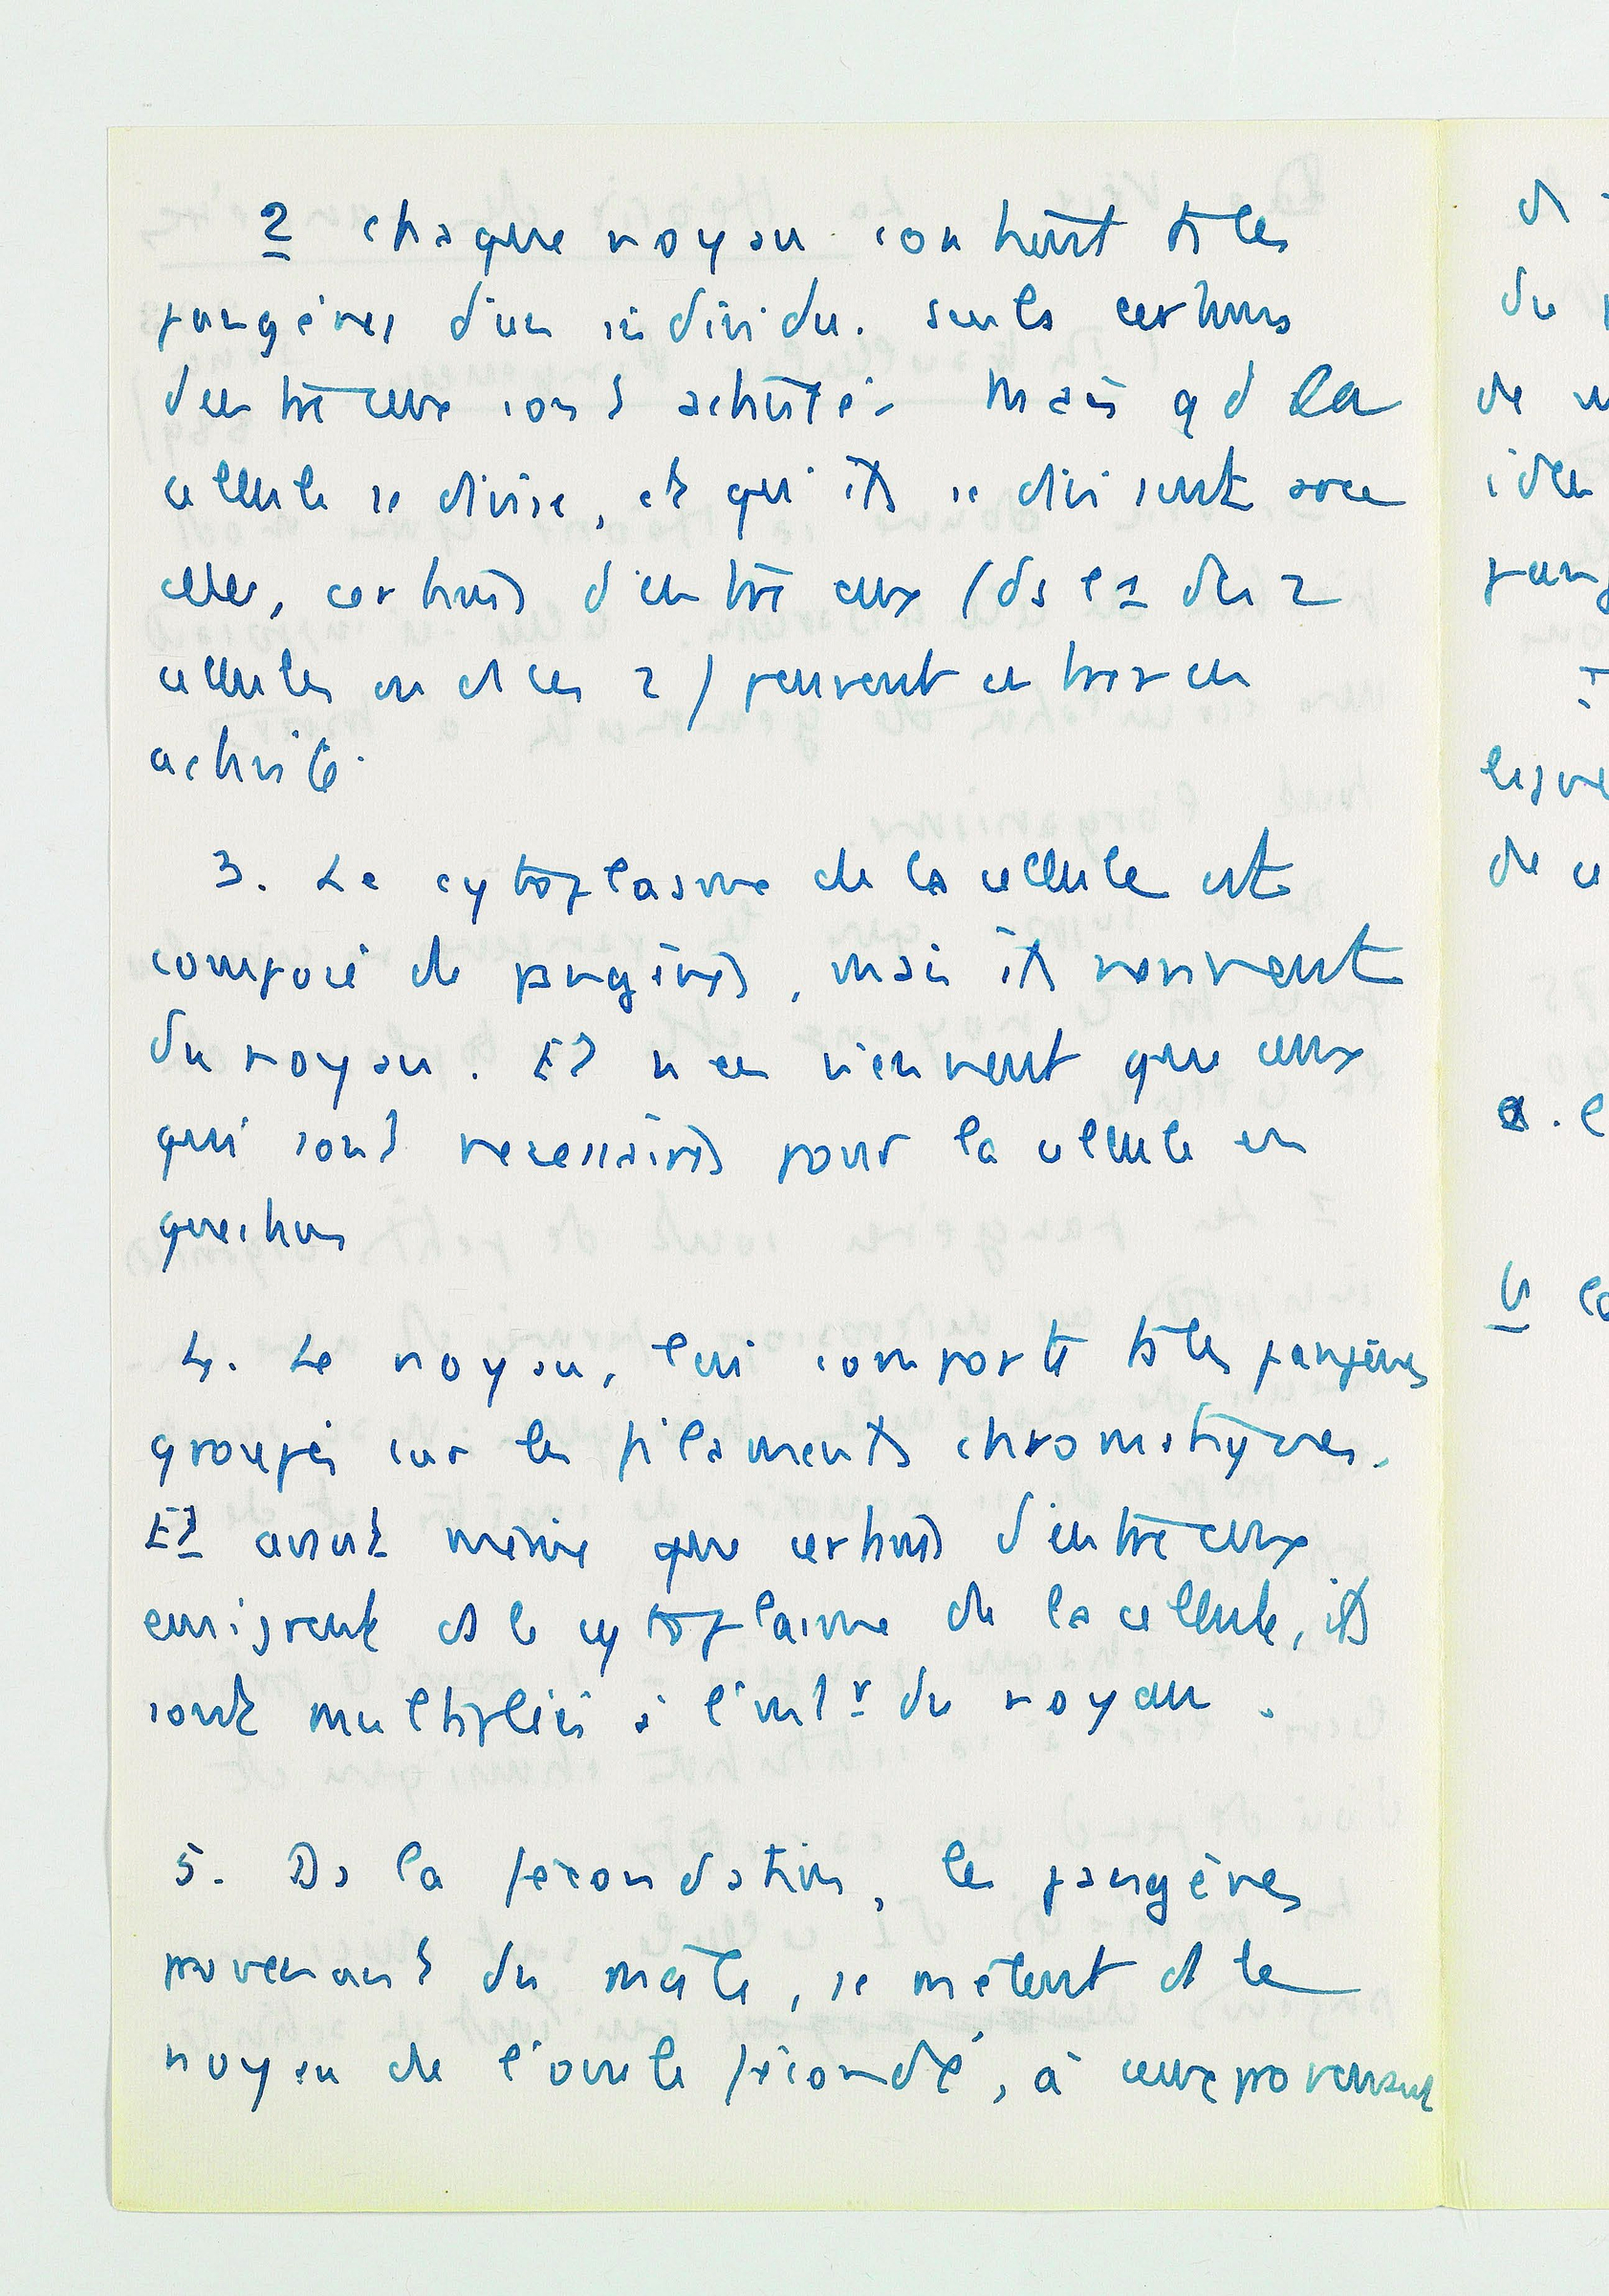 2 chaque noyau contient ts les
pangènes d'un individu. Seuls certains
d'entre eux sont activité. Mais qd la
cellule se divise, et qu'ils se divisent avec
elle, certains d'entre eux (ds l'1 des 2
cellules ou ds les 2) peuvent entrer en
activité.
3. Le cytoplasme de la cellule est
composé de pangènes, mais ils proviennent
du noyau. Et n'en viennent que ceux
qui sont nécessaires pour la cellule en
question
4. Le noyau, lui comporte ts les pangènes
groupés sur les filaments chromatiques.
Et avant même que certains d'entre eux
émigrent ds le cytoplasme de la cellule, ils
sont multipliés à l'intr du noyau.
5. Ds la fécondation, les pangènes
provenant du mâle, se mêlent ds le
noyau de l'ovule fécondé, à ceux provenant
ds
du
de
iden
pang
de
a.
b